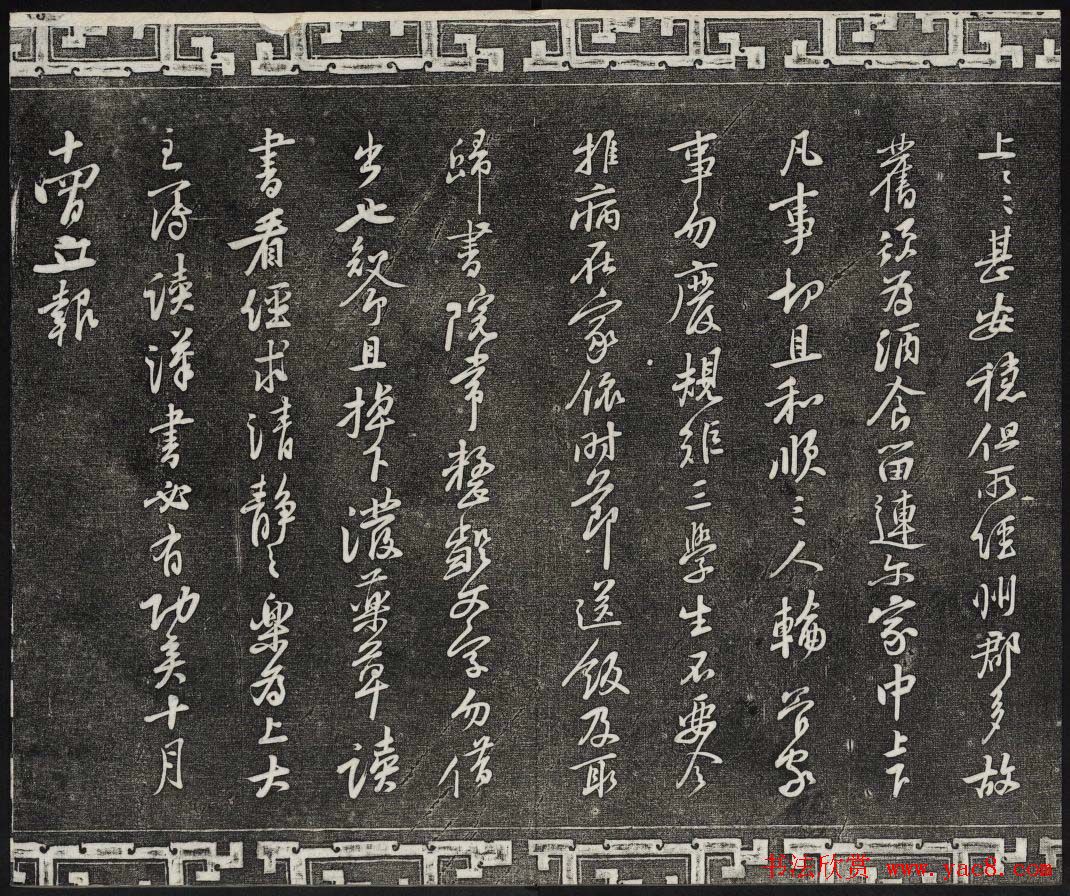 上〻〻甚安穩但所經州郡多故
舊須為酒食留連尔家中上下
凡事切且和順三人輪管家
事勿廢規矩三學生不要令
推病在家依时節送飯及取
歸書院常整齪文字勿借
出也知命且掉下潑藥草讀
書看經求清靜〻樂為上大
主簿读漢書必有功矣十月
十報
书法欣赏 www.yac8.com